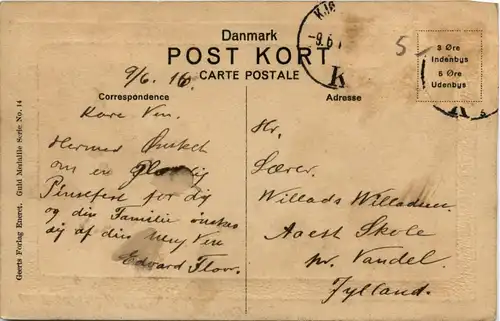 Danmark
POST KORT
CARTE POSTALE
Correspondence
Adresse
KJØ
-9.6.1
K
5
3 Øre
Indenbys
5 Øre
Udenbys
9/6. 16.
Kære Ven.
Hermed Ønsket
om en Glædelig
Pinsefest for dig
og din Familie ønskes
dig af din Ven
Edvard Flor.
Hr.
Lærer.
Willads Willadsen.
Aaest Skole
pr. Vandel.
Jylland.
Geerts Forlag Eneret. Guld Medaille Serie No. 14